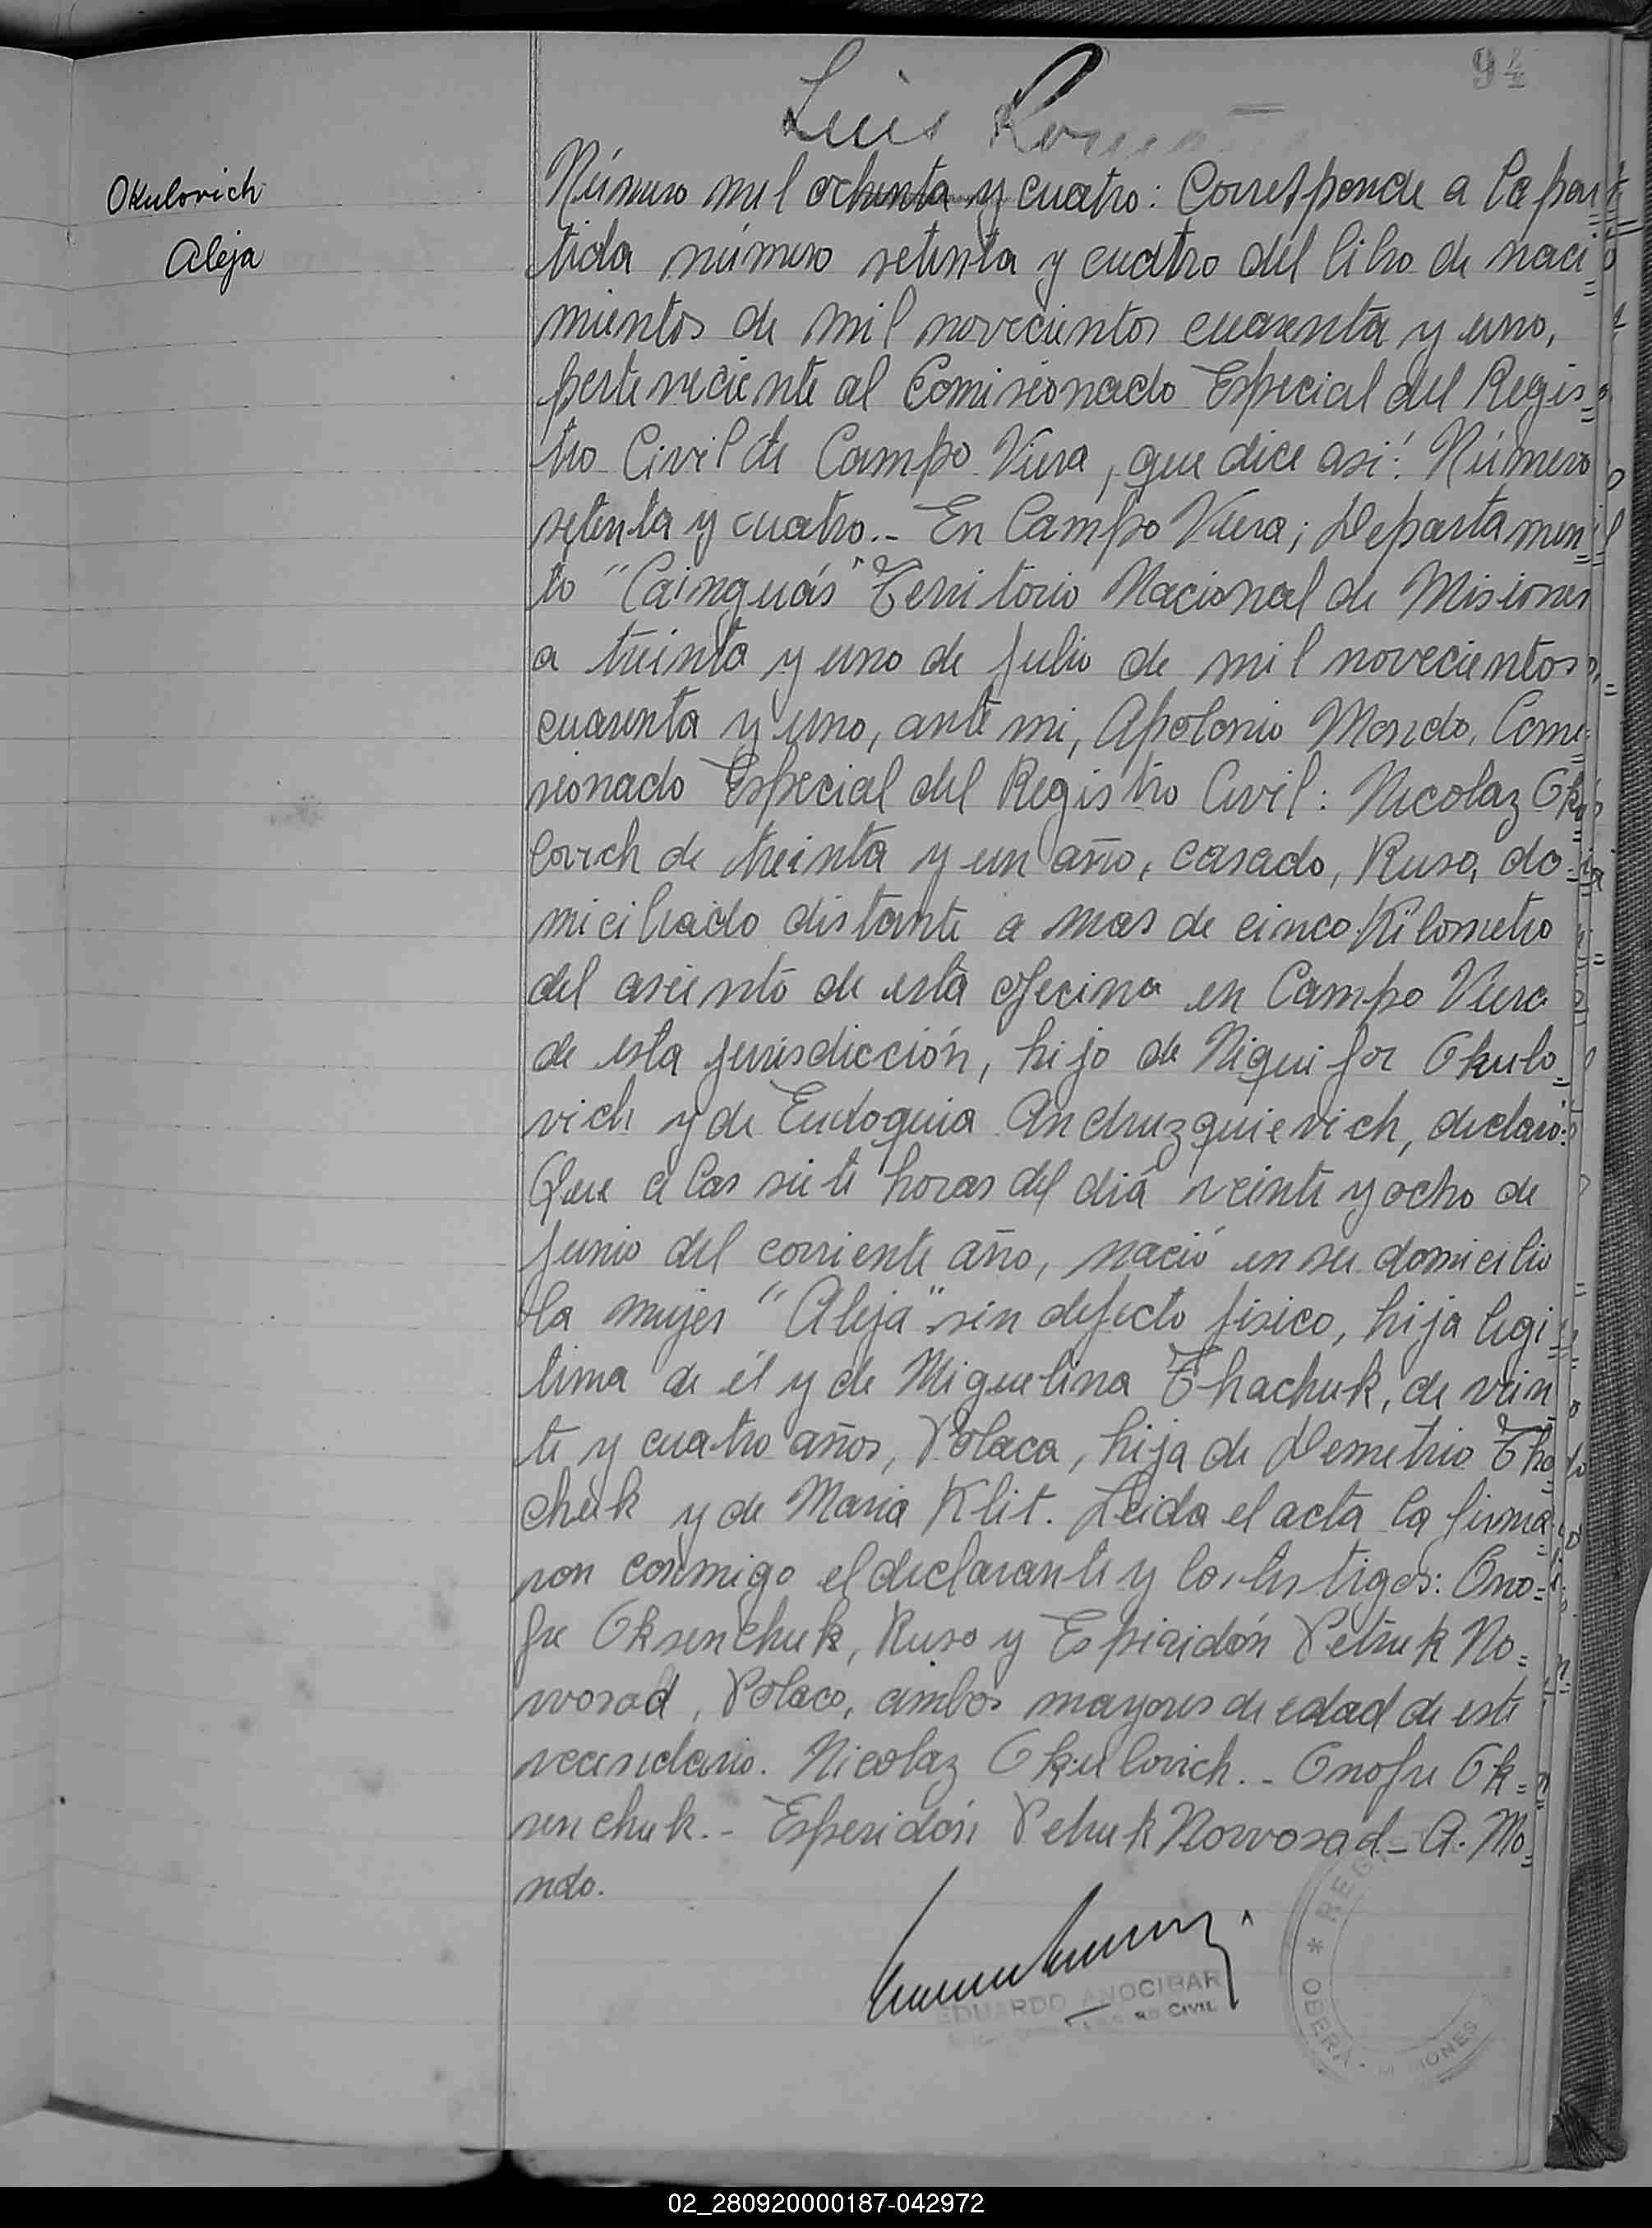 94
Luis
Okulovich
Aleja
Número mil ochenta y cuatro: Corresponde a la par
tida número setenta y cuatro del libro de naci=
mientos de mil novecientos cuarenta y uno,
perteneciente al Comisionado Especial del Regis=
tro Civil de Campo Viera, que dice asi: Número
setenta y cuatro.- En Campo Viera; Departamen=
to "Cainguás" Territorio Nacional de Misiones
a treinta y uno de Julio de mil novecientos
cuarenta y uno, ante mi, Apolonio Mondo, Comi=
sionado Especial del Registro Civil: Nicolaz Oku=
lovich de treinta y un año, casado, Ruso, do=
miciliado distante a mas de cinco Kilometro
del asiento de esta oficina en Campo Viera
de esta jurisdicción, hijo de Niquifor Okulo=
vich y de Eudoquia Andruzquievich, declaró:
Que a las siete horas del diá veinte y ocho de
Junio del corriente año, nació en su domicilio
la mujer "Aleja" sin defecto fisico, hija legi=
tima de él y de Miguelina Thachuk, de vein
te y cuatro años, Polaca, hija de Demetrio Tha=
chuk y de Maria Klit. Leida el acta la firma=
ron conmigo el declarante y los testigos: Ono=
fre Oksenchuk, Ruso y Espiridón Petruk No=
wosad, Polaco, ambos mayores de edad de este
vecindario. Nicolaz Okulovich.- Onofre Ok=
senchuk.- Esperidón Petruk Nowosad - A. Mo=
ndo.
EDUARDO ANOCIBAR
CIVIL
* REG
OBERA - MISIONES
02_280920000187-042972